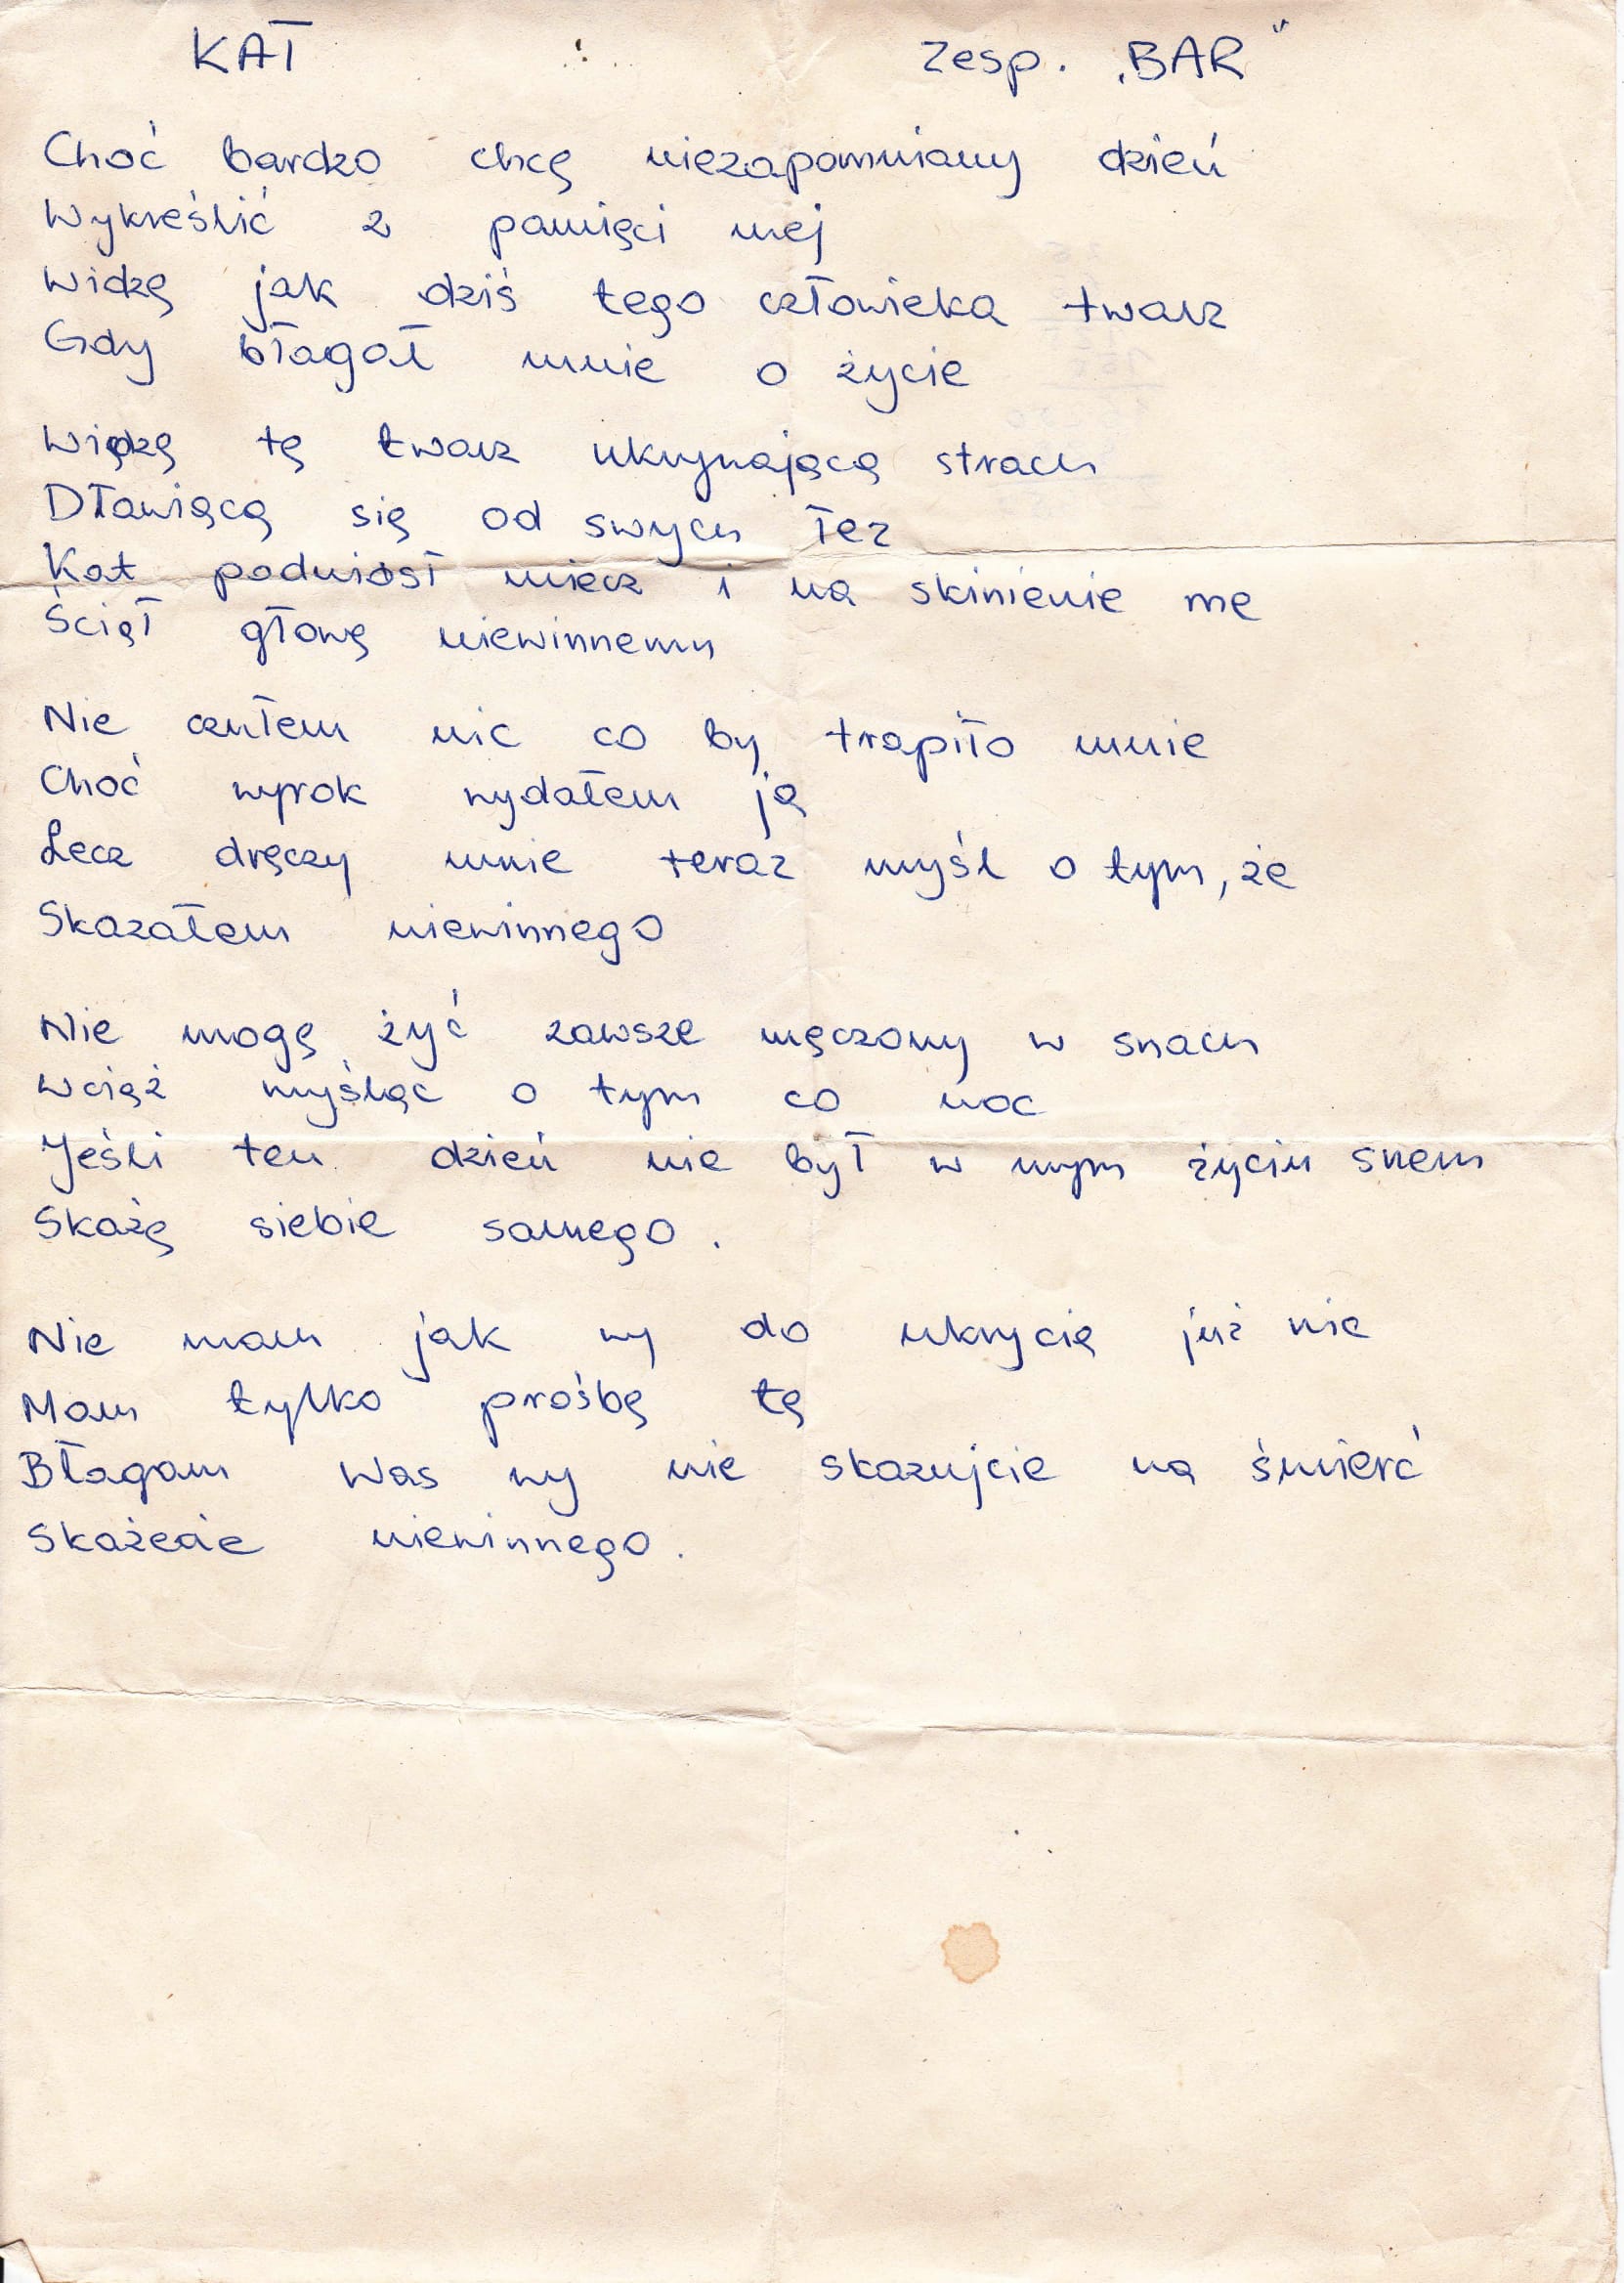 KAT zesp. „BAR"
Choć bardzo chcę niezapomniany dzień
Wykreślić z pamięci mej
Widzę jak dziś tego człowieka twarz
Gdy błagał mnie o życie
Widzę tę twarz ukrywającą strach
Dławiącą się od swych łez
Kat podniósł miecz i na skinienie me
Ściął głowę niewinnemu
Nie czułem nic co by trapiło mnie
Choć wyrok wydałem ja
Lecz dręczy mnie teraz myśl o tym, że
Skazałem niewinnego
Nie mogę żyć zawsze męczony w snach
Wciąż myśląc o tym co noc
Jeśli ten dzień nie był w mym życiu snem
Skażę siebie samego.
Nie mam jak wy do ukrycia już nic
Mam tylko prośbę tę
Błagam Was wy nie skazujcie na śmierć
Skażecie niewinnego.